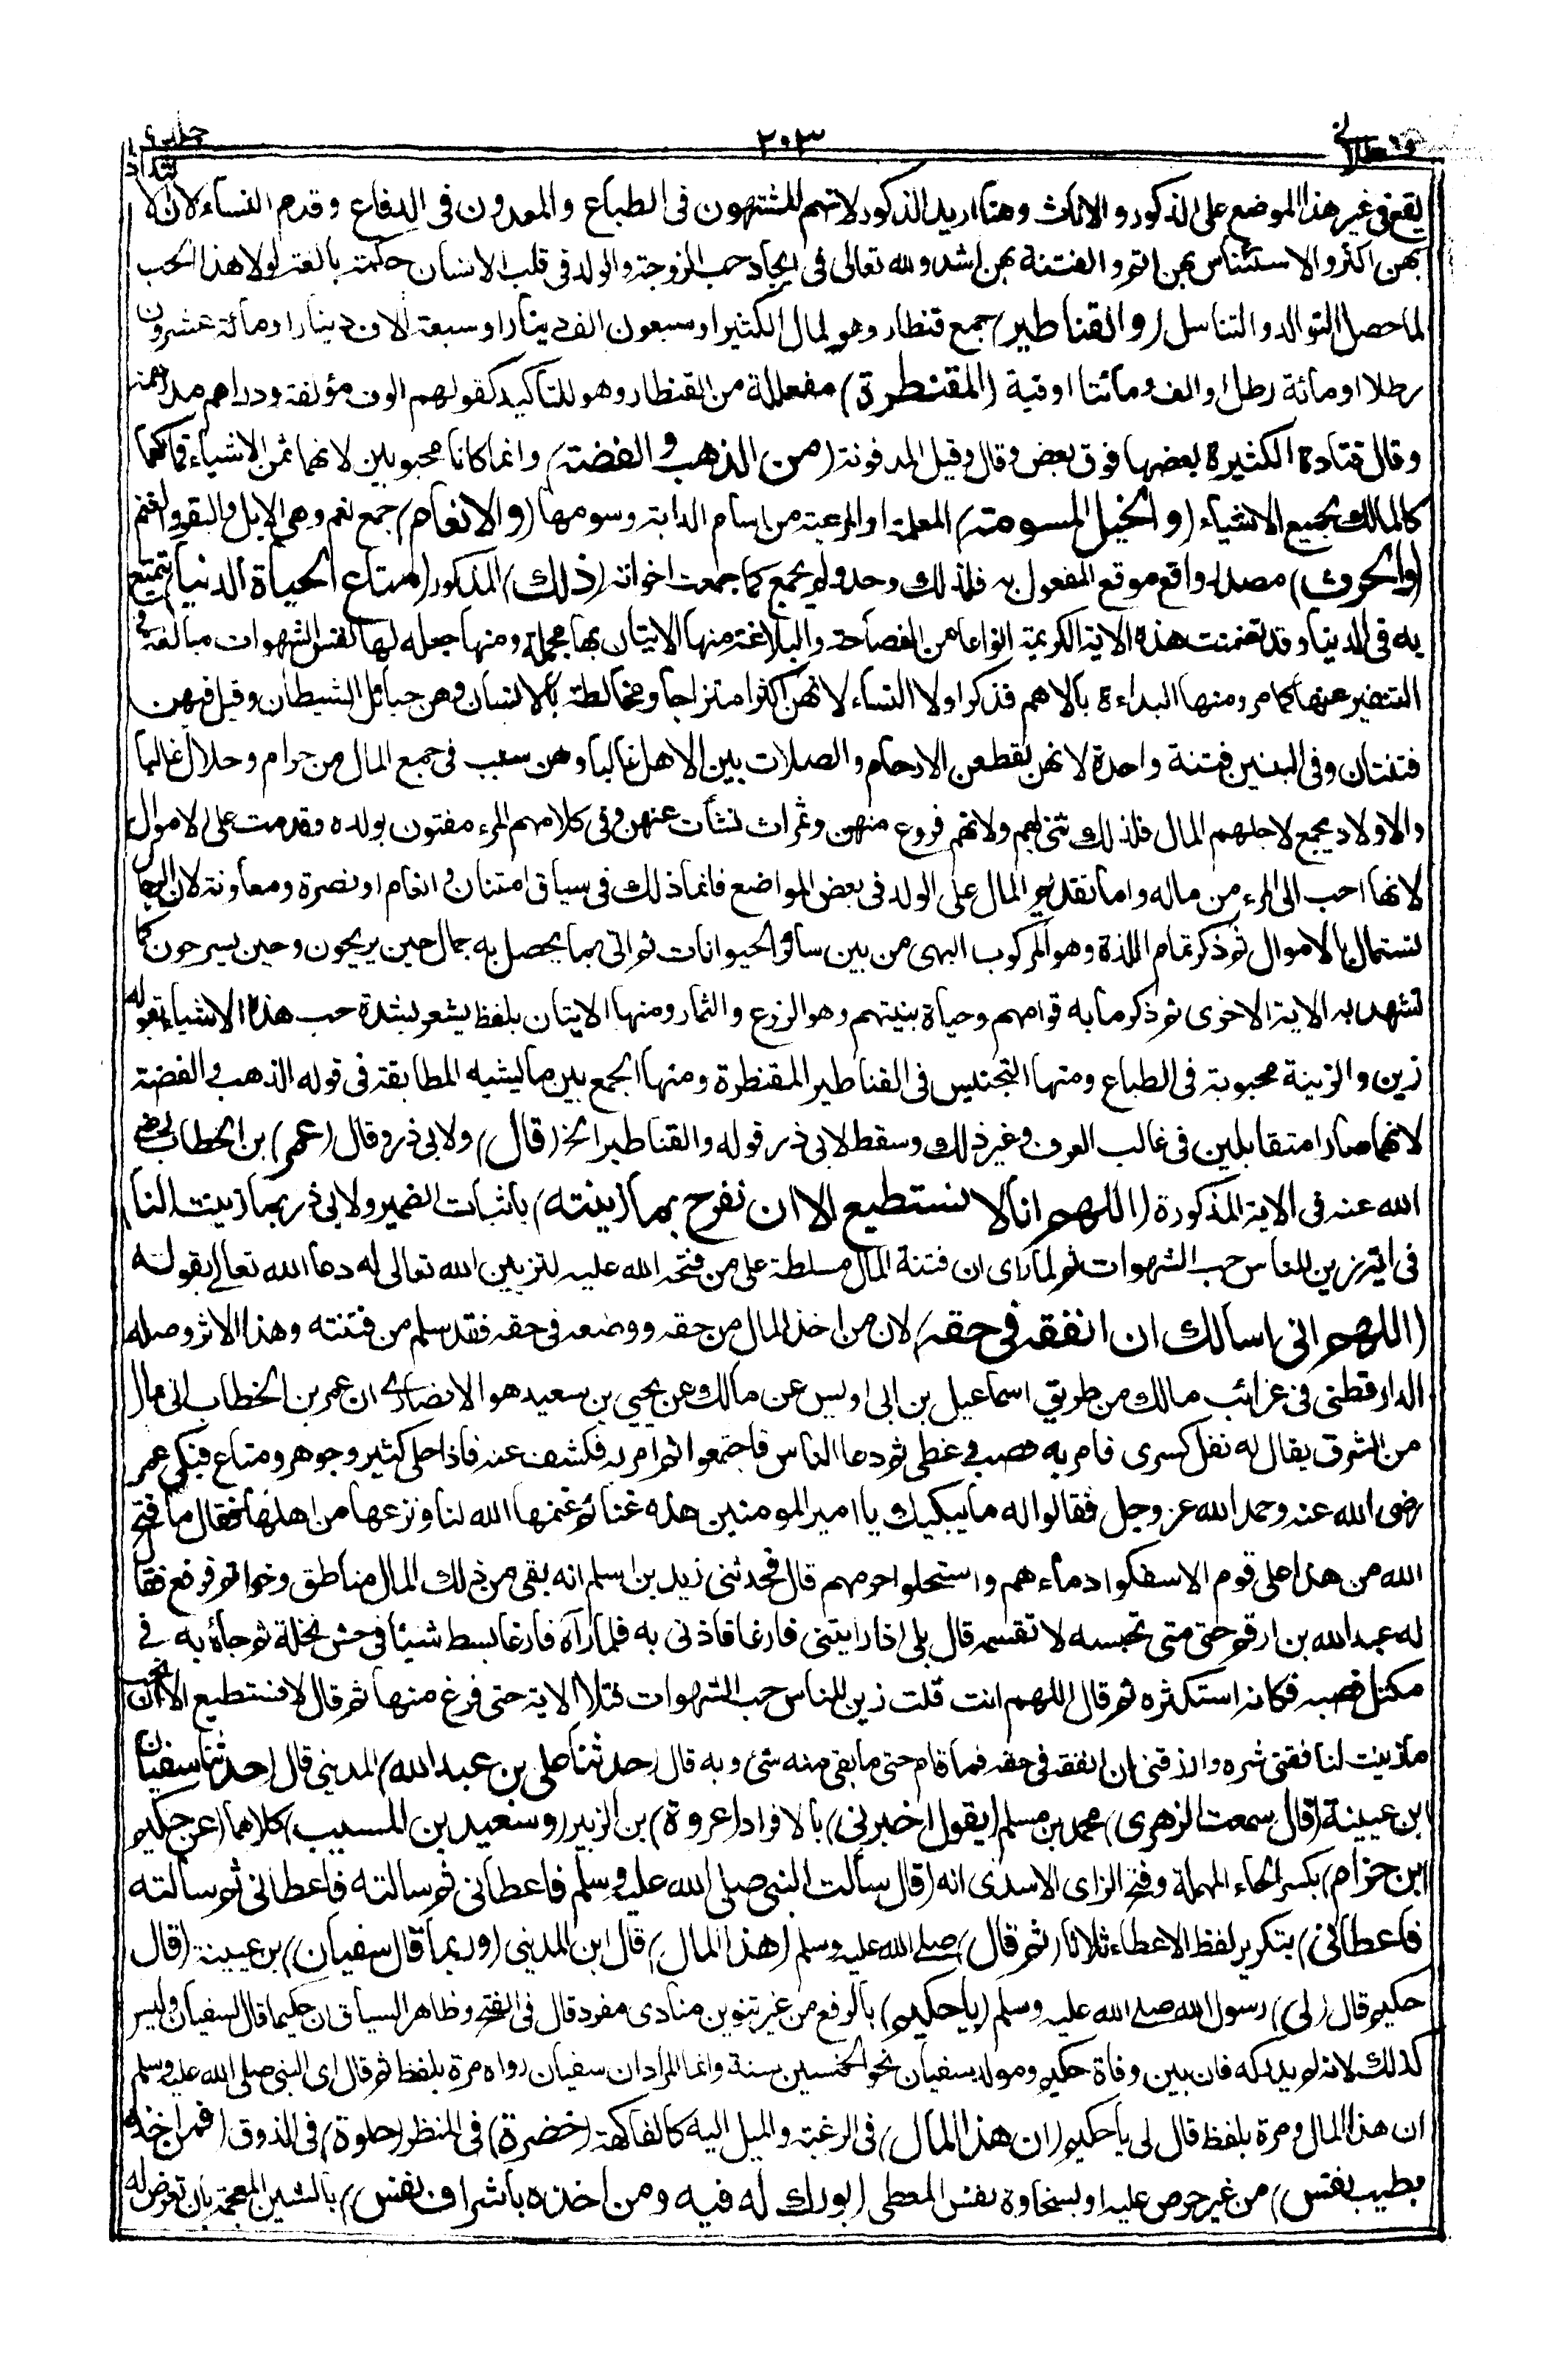 قسطلاني ٢٠٣ جلد
يقع في غير هذا الموضع على الذكور والاناث وهنا اريد الذكور لانهم المشتهون في الطباع والمعدون في الدفاع وقدم النساء لان الالتذاذ
بهن اكثر والاستئناس بهن اتم والفتنة بهن اشد ولله تعالى في ايجاد حب الزوجة والولد في قلب الانسان حكمة بالغة لولا هذا الحب
لما حصل التوالد والتناسل (والقناطير) جمع قنطار وهو المال الكثير او سبعون الف دينار او سبعة الاف دينار او مائة وعشرون
رطلا او مائة رطل او الف ومائتا اوقية (المقنطرة) مفعللة من القنطار وهو للتأكيد كقولهم الوف مؤلفة ودراهم مدرهمة
وقال قتادة الكثيرة بعضها فوق بعض وقال وقيل المدفونة (من الذهب والفضة) وانما كانا محبوبين لانهما ثمن الاشياء فمالكهما
كالمالك لجميع الاشياء (والخيل المسومة) المعلمة او المرعية من اسام الدابة وسومها (والانعام) جمع نعم وهي الابل والبقر والغنم
(والحرث) مصدر واقع موقع المفعول به فلذلك وحد ولم يجمع كما جمعت اخواته (ذلك) المذكور (متاع الحياة الدنيا) يتمتع
به في الدنيا وقد تضمنت هذه الاية الكريمة انواعا من الفصاحة والبلاغة منها الاتيان بها مجملة ومنها جعله لها نفس الشهوات مبالغة في
التنفير عنها كما مر ومنها البداءة بالاهم فذكر اولا النساء لانهن اكثر امتزاجا ومخالطة بالانسان وهن حبائل الشيطان وقيل فيهن
فتنتان وفي البنين فتنة واحدة لانهن يقطعن الارحام والصلات بين الاهل غالبا وهن سبب في جمع المال من حرام وحلال غالبا
والاولاد يجمع لاجلهم المال فلذلك ثنى بهم ولانهم فروع منهن وثمرات نشأت عنهن وفي كلامهم المرء مفتون بولده وقدمت على الاموال
لانها احب الى المرء من ماله واما تقديم المال على الولد في بعض المواضع فانما ذلك في سياق امتنان وانعام او نصرة ومعاونة لان الرجال
تستمال بالاموال ثم ذكر تمام اللذة وهو المركوب البهي من بين سائر الحيوانات ثم اتى بما يحصل به جمال حين يريحون وحين يسرحون كما
تشهد به الاية الاخرى ثم ذكر ما به قوامهم وحياة بنيتهم وهو الزرع والثمار ومنها الاتيان بلفظ يشعر بشدة حب هذه الاشياء بقوله
زين والزينة محبوبة في الطباع ومنها التجنيس في القناطير المقنطرة ومنها الجمع بين ما يشبه المطابقة في قوله الذهب والفضة
لانهما صارا متقابلين في غالب العرف وغير ذلك وسقط لابي ذر قوله والقناطير الخ (قال) ولابي ذر وقال (عمر) بن الخطاب رضي
الله عنه في الاية المذكورة (اللهم انا لا نستطيع الا ان نفرح بما زينته) باثبات الضمير ولابي ذر بما زينت لنا
في اية زين للناس حب الشهوات ثم لما راى ان فتنة المال مسلطة على من فتحه الله عليه لتزيين الله تعالى له دعا الله تعالى بقوله
(اللهم اني اسالك ان انفقه في حقه) لان من اخذ المال من حقه ووضعه في حقه فقد سلم من فتنته وهذا الاثر وصله
الدارقطني في غرائب مالك من طريق اسماعيل بن ابي اويس عن مالك عن يحيى بن سعيد هو الانصاري ان عمر بن الخطاب اتى بمال
من المشرق يقال له نفل كسرى فامر به فصب وغطى ثم دعا الناس فاجتمعوا ثم امر به فكشف عنه فاذا حلى كثير وجوهر ومتاع فبكى عمر
رضى الله عنه وحمد الله عز وجل فقالوا له ما يبكيك يا امير المومنين هذه غنائم غنمها الله لنا ونزعها من اهلها فقال ما فتح
الله من هذا على قوم الا سفكوا دماءهم واستحلوا حرمهم قال فحدثني زيد بن اسلم انه بقى من ذلك المال مناطق وخواتم فرفع فقال
له عبد الله بن ارقم حتى متى تحبسه لا تقسمه قال بلى اذا رايتني فارغا فاذني به فلما رآه فارغا بسط شيئا في حش نخلة ثم جاءه به في
مكتل فصبه فكانه استكثره ثم قال اللهم انت قلت زين للناس حب الشهوات فتلا الاية حتى فرغ منها ثم قال لا نستطيع الا ان نحب
ما زينت لنا فقني شره وارزقني ان انفقه في حقه فما قام حتى ما بقى منه شئ وبه قال (حدثنا علي بن عبد الله) المديني قال (حدثنا سفيان)
ابن عيينة (قال سمعت الزهرى) محمد بن مسلم (يقول اخبرني) بالافراد (عروة) بن الزبير (وسعيد بن المسيب) كلاهما (عن حكيم
ابن حزام) بكسر الحاء المهملة وفتح الزاى الاسدى انه (قال سألت النبي صلى الله عليه وسلم فاعطاني ثم سالته فاعطاني ثم سالته
فاعطاني) بتكرير لفظ الاعطاء ثلاثا (ثم قال) صلى الله عليه وسلم (هذا المال) قال ابن المديني (وربما قال سفيان) بن عيينة (قال)
حكيم قال (لي) رسول الله صلى الله عليه وسلم (يا حكيم) بالرفع من غير تنوين منادى مفرد قال في الفتح وظاهر السياق ان حكيما قال لسفيان وليس
كذلك لانه لم يدركه فان بين وفاة حكيم ومولد سفيان نحو الخمسين سنة وانما المراد ان سفيان رواه مرة بلفظ ثم قال اى النبي صلى الله عليه وسلم
ان هذا المال ومرة بلفظ قال لي يا حكيم (ان هذا المال) في الرغبة والميل اليه كالفاكهة (خضرة) في المنظر (حلوة) في الذوق (فمن اخذه
بطيب نفس) من غير حرص عليه او بسخاوة نفس المعطى (بورك له فيه ومن اخذه باشراف نفس) بالشين المعجمة بان تعرض له